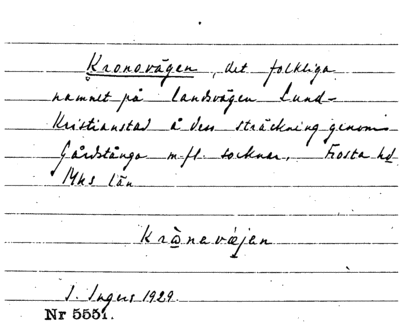 Kronovägen, det folkliga
namnet på landsvägen Lund-
Kristianstad å dess sträckning genom
Gårdstånga m.fl. socknar, Frosta hd
Mhs län
krònavǽjan
I. Ingers 1929.
Nr 5551.